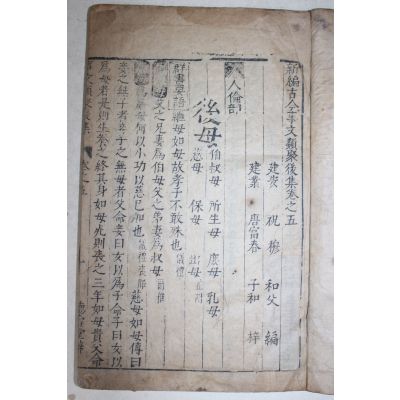 新編古今事文類聚後集卷之五
建安 祝穆 和父 編
建業 唐富春 子和 梓
人倫部
後母
伯叔母 所生母 庶母 乳母
慈母 保母 出母
群書要語 繼母如母故孝子不敢殊也 儀禮
父之兄妻為伯母父之弟妻為叔母
何以小功以慈己加也 儀禮喪服 慈母如母傳曰
妾之無子者妾子之無母者父命妾曰女以為子命子曰女以
為母若是則生養之終其身如母死則喪之三年如母貴父命
事文類聚後集 卷之五